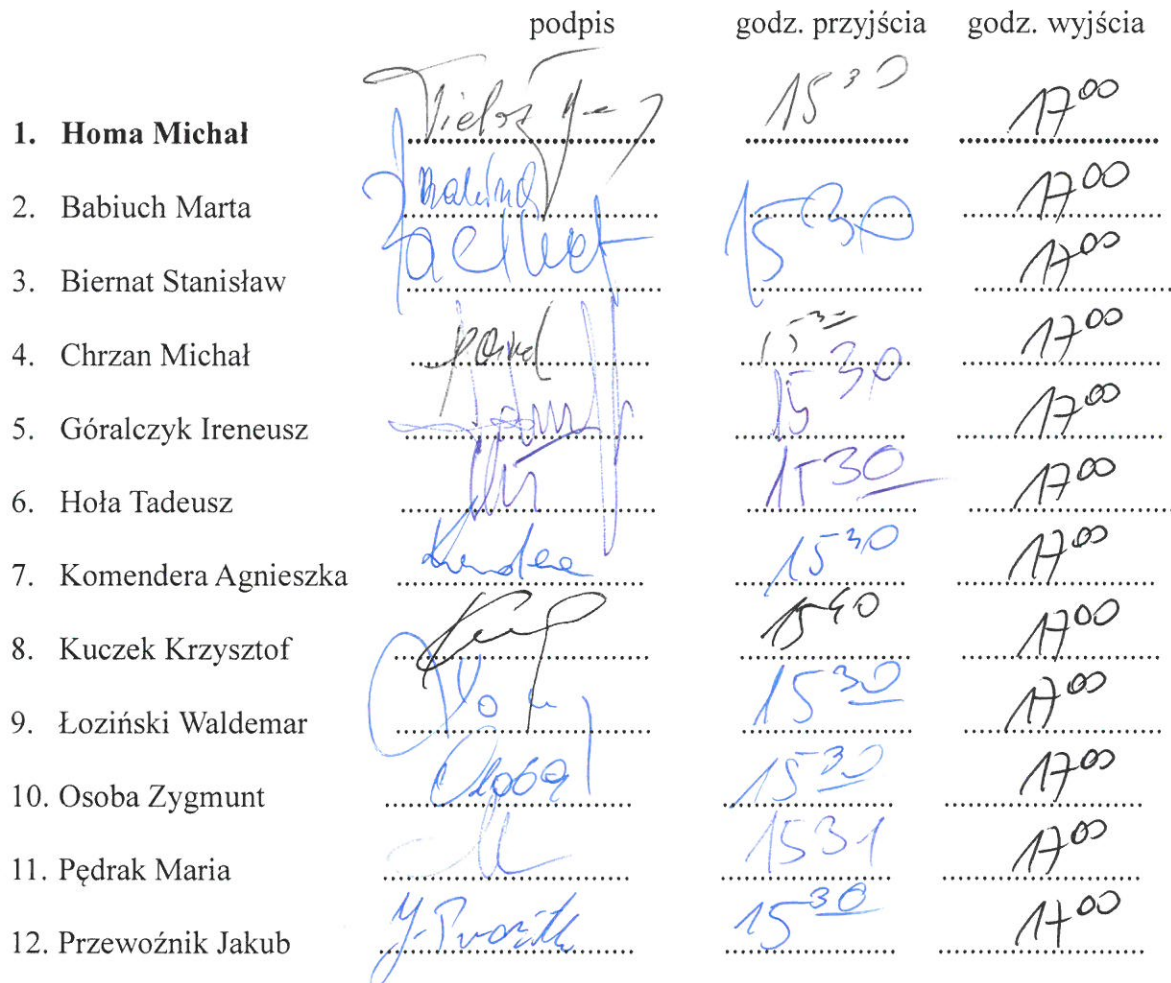 podpis godz. przyjścia godz. wyjścia
1. Homa Michał 15³⁰ 17⁰⁰
2. Babiuch Marta 17⁰⁰
3. Biernat Stanisław 15³⁰ 17⁰⁰
4. Chrzan Michał 15³⁰ 17⁰⁰
5. Góralczyk Ireneusz 15³⁰ 17⁰⁰
6. Hoła Tadeusz 15³⁰ 17⁰⁰
7. Komendera Agnieszka 15³⁰ 17⁰⁰
8. Kuczek Krzysztof 15⁴⁰ 17⁰⁰
9. Łoziński Waldemar 15³⁰ 17⁰⁰
10. Osoba Zygmunt Osoba 15³⁰ 17⁰⁰
11. Pędrak Maria 15³¹ 17⁰⁰
12. Przewoźnik Jakub 15³⁰ 17⁰⁰